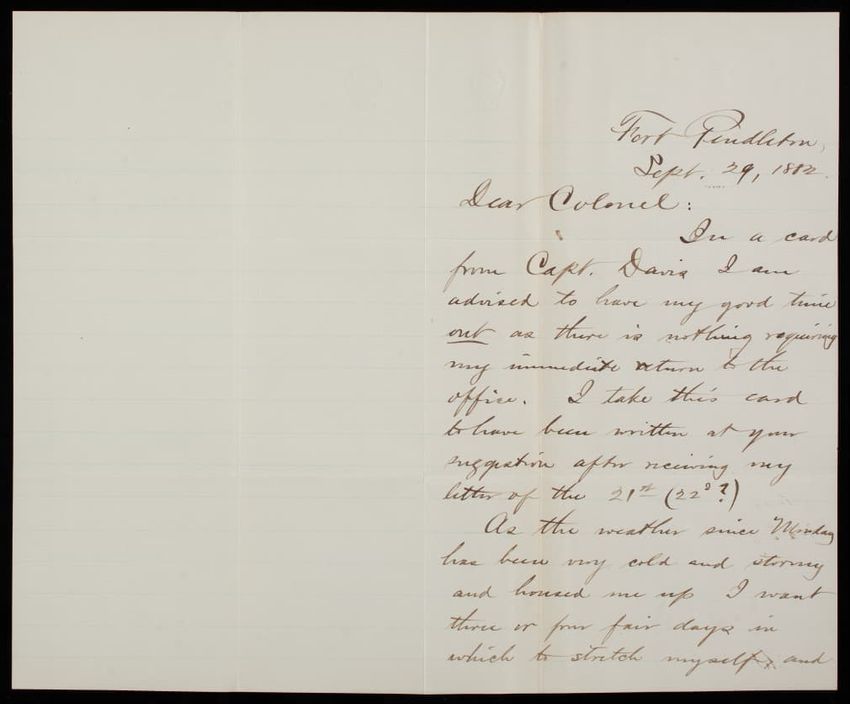 Fort Pendleton,
Sept. 29, 1882.
Dear Colonel:
In a card
from Capt. Davis I am
advised to have my good time
out as there is nothing requiring
my immediate return to the
office. I take this card
to have been written at your
suggestion after receiving my
letter of the 21st (22d?)
As the weather since Monday
has been very cold and stormy
and housed me up I want
three or four fair days in
which to stretch myself, and